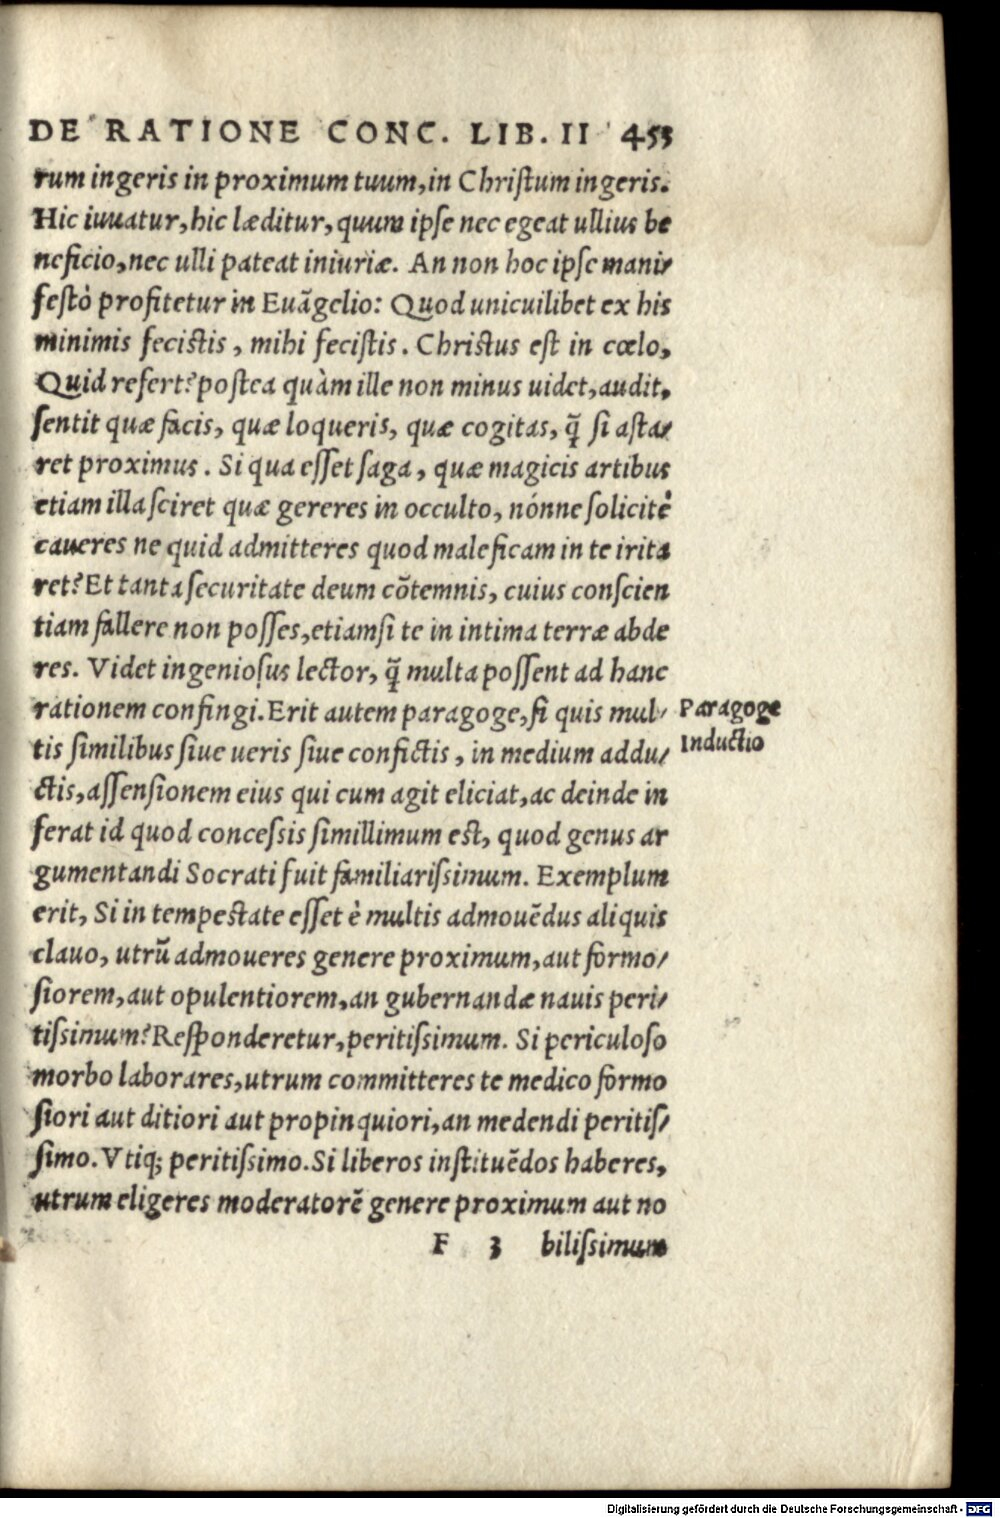 DE RATIONE CONC. LIB. II 453
rum ingeris in proximum tuum, in Chriſtum ingeris.
Hic iuuatur, hic læditur, quum ipſe nec egeat ullius be
neficio, nec ulli pateat iniuriæ. An non hoc ipſe mani-
feſtò profitetur in Euãgelio: Quod unicuilibet ex his
minimis feciſtis, mihi feciſtis. Chriſtus eſt in cœlo,
Quid refert? poſtea quàm ille non minus uidet, audit,
ſentit quæ facis, quæ loqueris, quæ cogitas, q̃ ſi aſta-
ret proximus. Si qua eſſet ſaga, quæ magicis artibus
etiam illa ſciret quæ gereres in occulto, nónne ſolicitè
caueres ne quid admitteres quod maleficam in te irita
ret? Et tanta ſecuritate deum cõtemnis, cuius conſcien
tiam fallere non poſſes, etiamſi te in intima terræ abde
res. Videt ingenioſus lector, q̃ multa poſſent ad hanc
rationem confingi. Erit autem paragoge, ſi quis mul-
Paragoge
tis ſimilibus ſiue ueris ſiue confictis, in medium addu-
Inductio
ctis, aſſenſionem eius qui cum agit eliciat, ac deinde in
ferat id quod conceſsis ſimillimum eſt, quod genus ar
gumentandi Socrati fuit familiariſsimum. Exemplum
erit, Si in tempeſtate eſſet è multis admouẽdus aliquis
clauo, utrũ admoueres genere proximum, aut formo-
ſiorem, aut opulentiorem, an gubernandæ nauis peri-
tiſsimum? Reſponderetur, peritiſsimum. Si periculoſo
morbo laborares, utrum committeres te medico formo
ſiori aut ditiori aut propinquiori, an medendi peritiſ-
ſimo. Vtiq; peritiſsimo. Si liberos inſtituẽdos haberes,
utrum eligeres moderatorẽ genere proximum aut no
F 3 biliſsimum
Digitalisierung gefördert durch die Deutsche Forschungsgemeinschaft - DFG